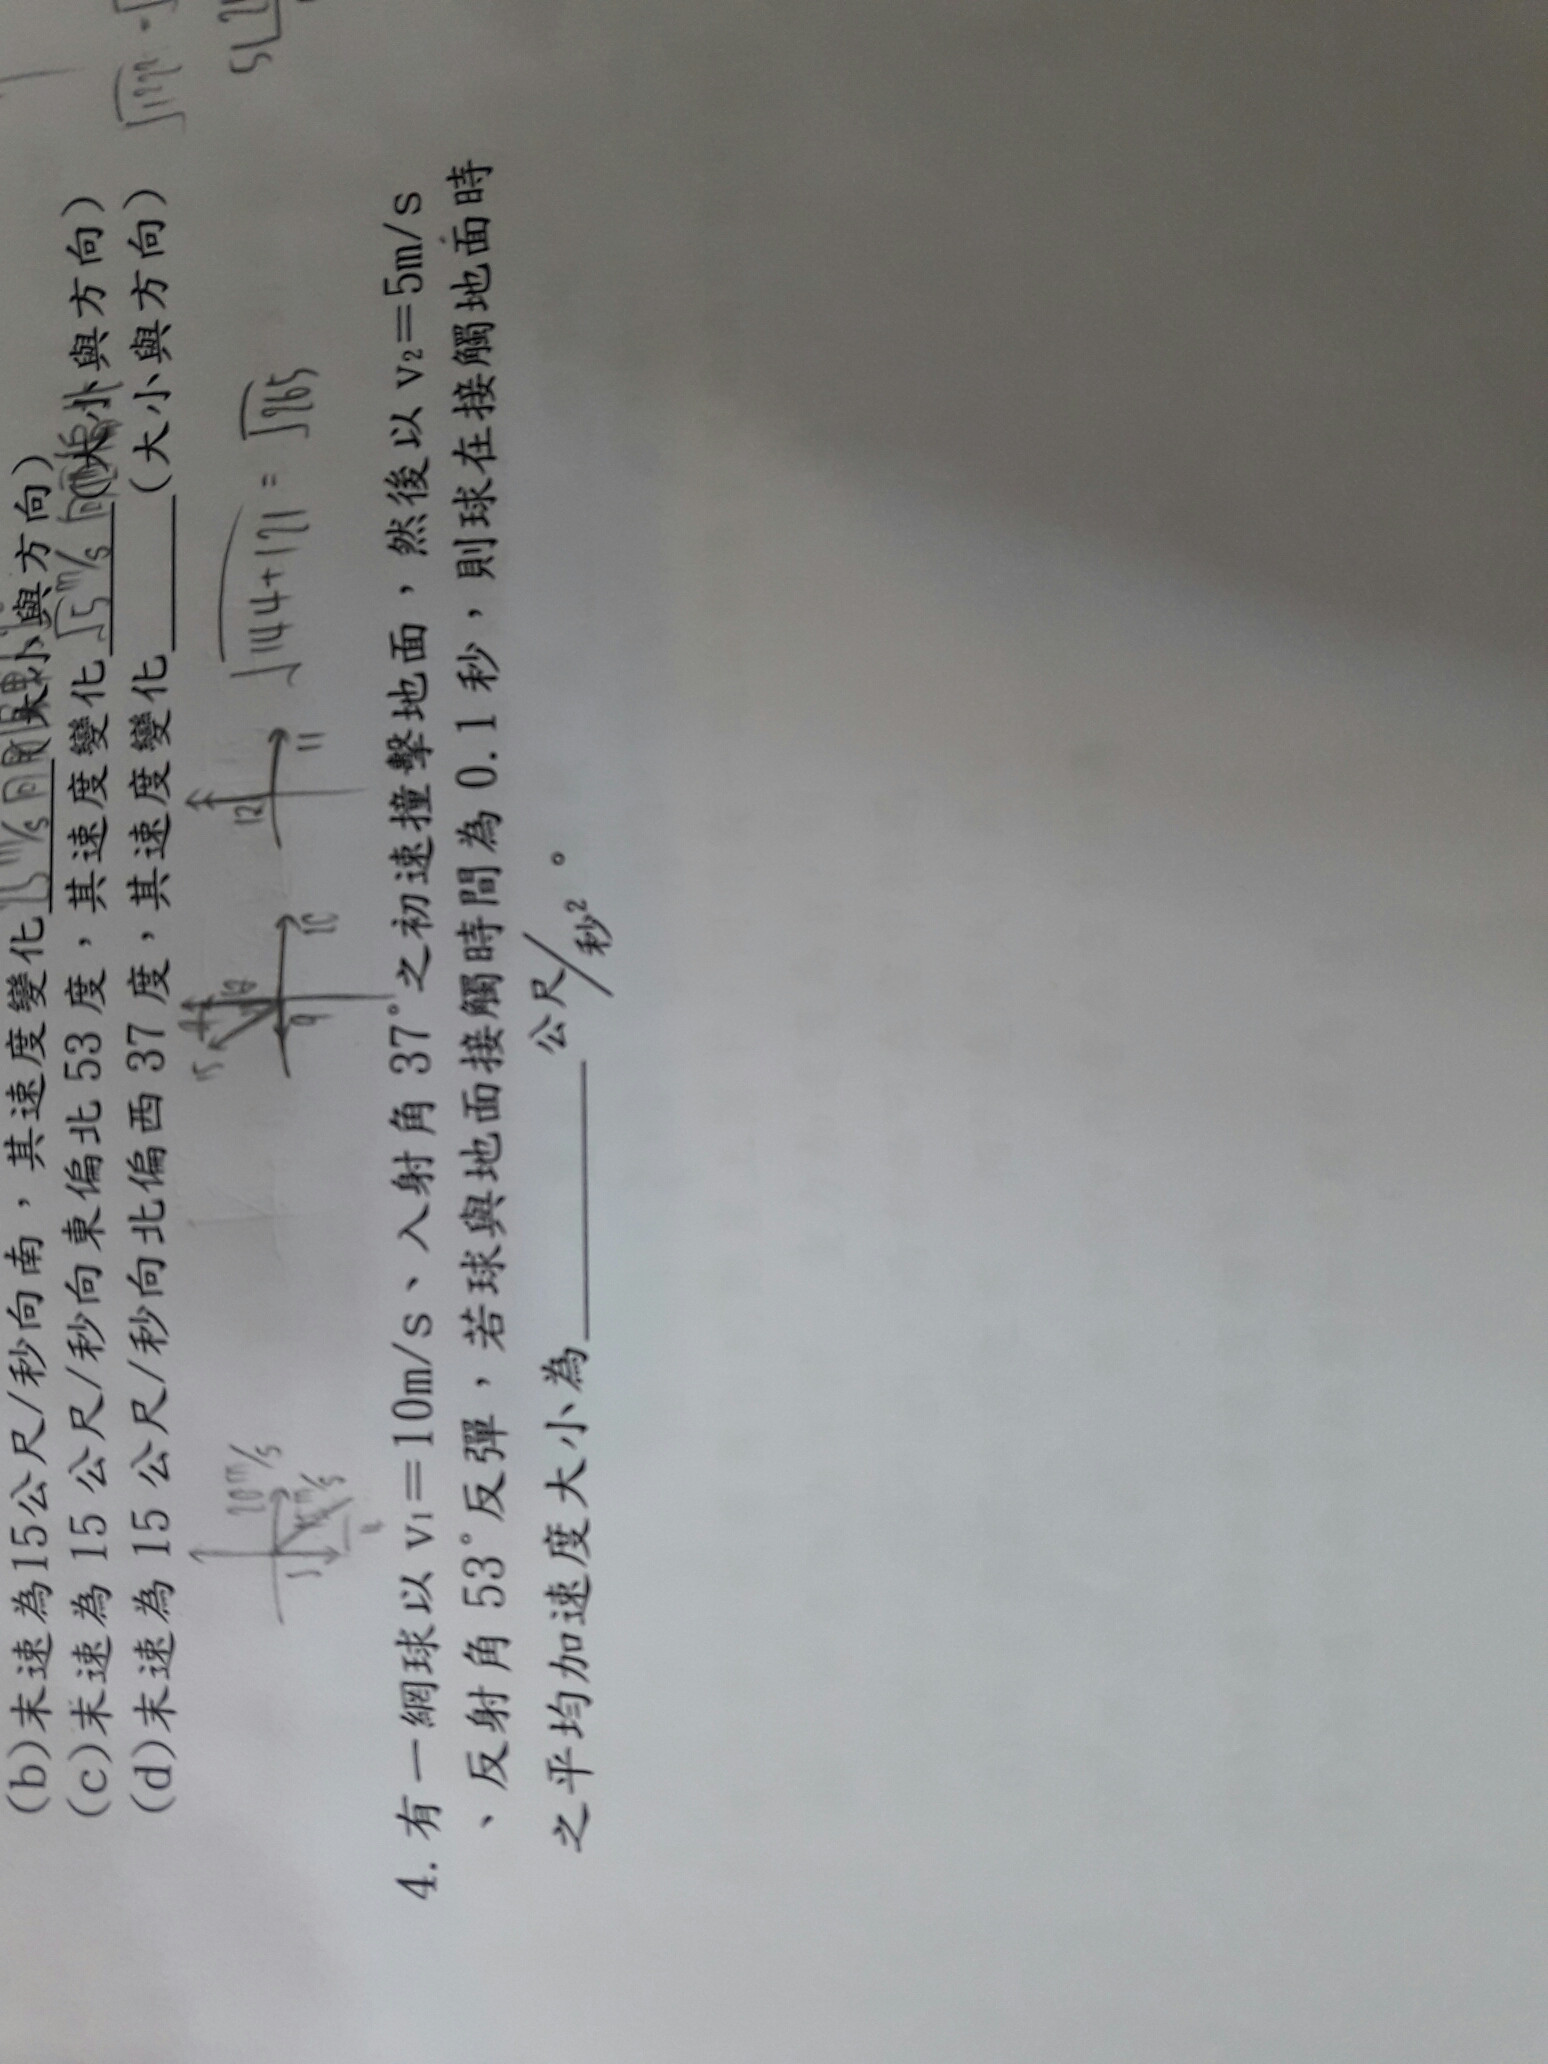 (b)末速為15公尺/秒向南，其速度變化 15 m/s 向 小與方向)
(c)末速為 15 公尺/秒向東偏北 53 度，其速度變化 15 m/s 向 小與方向)
(d)末速為 15 公尺/秒向北偏西 37 度，其速度變化______(大小與方向)
20 m/s
15
12
9
10
12
11
√144+121 = √265
4. 有一網球以 v₁＝10m/s、入射角 37°之初速撞擊地面，然後以 v₂＝5m/s
、反射角 53°反彈，若球與地面接觸時間為 0.1 秒，則球在接觸地面時
之平均加速度大小為________公尺/秒²。